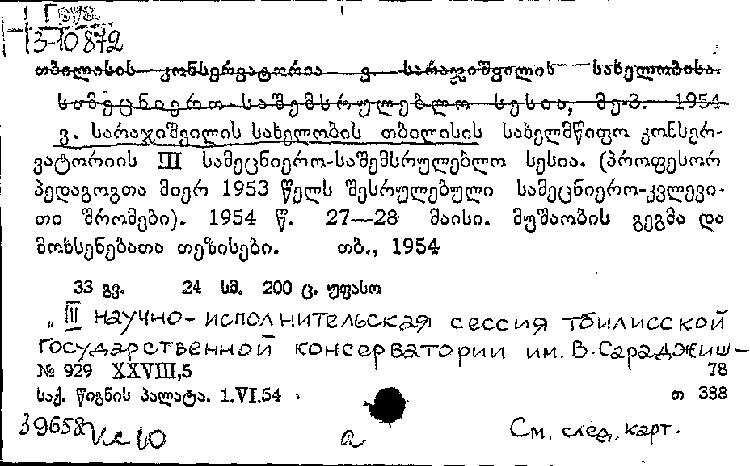 3-10872
თბილისის კონსერვატორია ვ. სარაჯიშვილის სახელობისა.
სამეცნიერო-საშემსრულებლო სესია, მე-3. 1954
ვ. სარაჯიშვილის სახელობის თბილისის სახელმწიფო კონსერ-
ვატორიის III სამეცნიერო-საშემსრულებლო სესია. (პროფესორ
პედაგოგთა მიერ 1953 წელს შესრულებული სამეცნიერო-კვლევი-
თი შრომები). 1954 წ. 27—28 მაისი. მუშაობის გეგმა და
მოხსენებათა თეზისები. თბ., 1954
33 გვ. 24 სმ. 200 ც. უფასო
„III научно-исполнительская сессия Тбилисской
государственной консерватории им. В. Сараджиш-
№ 929 XXVIII,5 78
საქ. წიგნის პალატა. 1.VI.54 თ 388
39658
а См. след. карт.